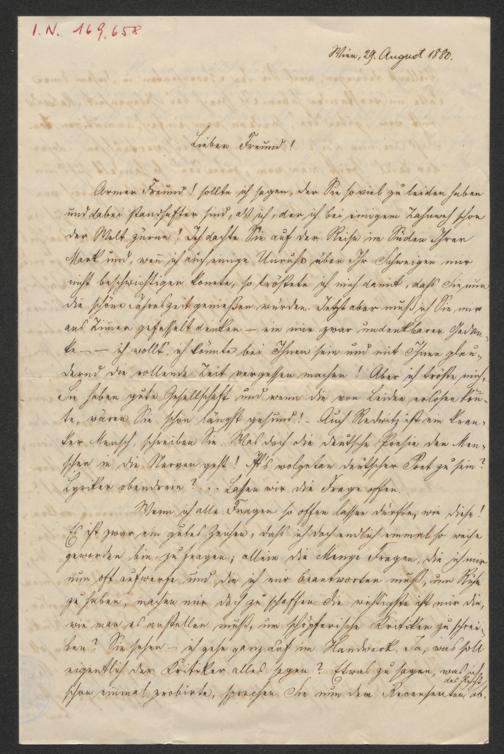 I. N. 169.658
Wien, 29. August 1880.
Lieber Freund!
Armer Freund! sollte ich sagen, der Sie so viel zu leiden haben
und dabei standhafter sind, als ich, der ich bei einigem Zahnweh schon
der Welt zürne! Ich dachte Sie auf der Reise im Süden Ihren
Mark und, wenn ich auch einige Unruhe über Ihr Schweigen mir
nicht beschwichtigen konnte, so tröstete ich mich damit, daß Sie nun
die schöne Jahreszeit genießen würden. Jetzt aber muß ich Sie mir
ans Zimmer gefesselt denken — ein mir zwar undenkbarer Gedan-
ke — — ich wollt, ich könnte bei Ihnen sein und mit Ihnen plau-
dernd die rollende Zeit vergessen machen! Aber ich tröste mich,
Sie haben gute Gesellschaft und wenn die von Leiden erlösen könn-
te, wären Sie schon längst gesund! — Auch Redwitz ist ein kran-
ker Mensch, schreiben Sie. Was doch die deutsche Poesie den Men-
schen an die Nerven geht! Als wolgeboren deutscher Poet zu sein?
Lyriker obendrein? ... Lassen wir die Frage offen.
Wenn ich alle Fragen so offen lassen dürfte, wie diese!
Es ist zwar ein gutes Zeichen, daß ich doch endlich einmal so weise
geworden bin zu fragen; allein die Menge Fragen, die ich mir
nun oft aufwerfe und die ich mir beantworten muß, um Ruhe
zu haben, machen mir doch zu schaffen. Die wichtigste ist mir die,
wie man es anstellen muß, um schöpferische Kritiken zu schrei-
ben? Sie sehen — ich gehe ganz auf im Handwerk. Ja, was soll
eigentlich der Kritiker alles sagen? Etwas zu sagen, was ich
schon einmal probirte, sprechen Sie nun dem Recensenten das Recht ab.